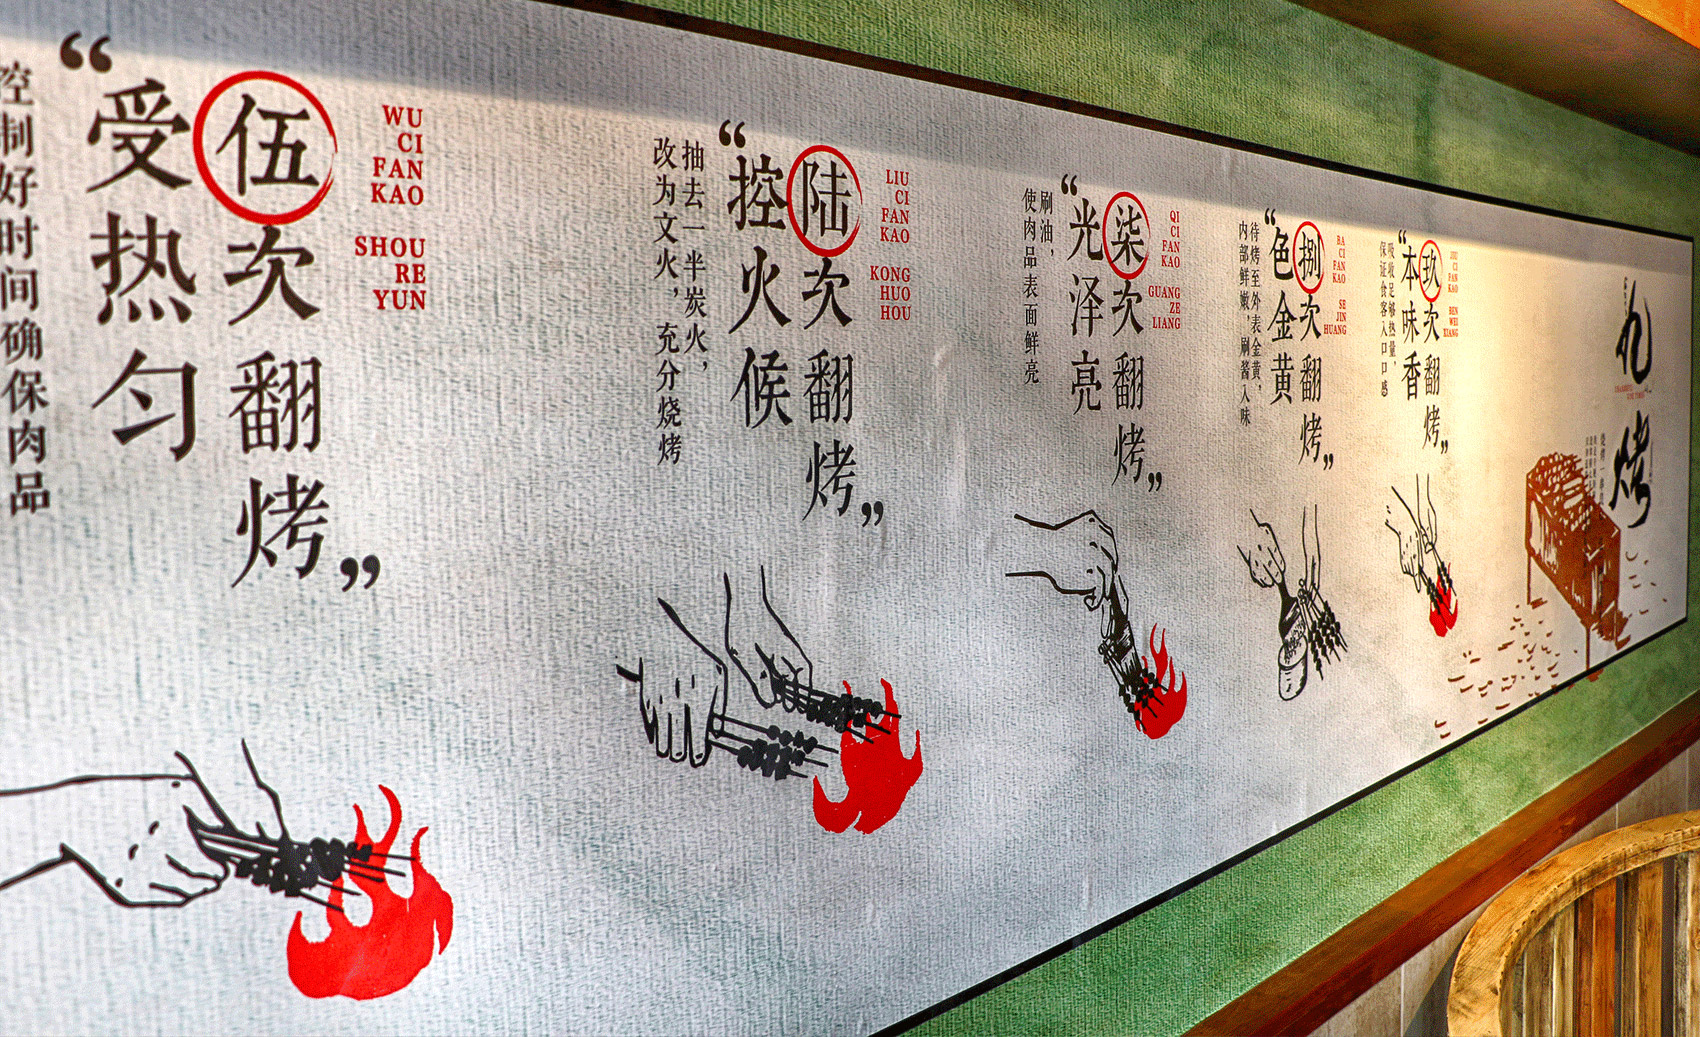 伍次翻烤
受热匀
WU
CI
FAN
KAO
SHOU
RE
YUN
控制好时间确保肉品
陆次翻烤
控火候
LIU
CI
FAN
KAO
KONG
HUO
HOU
抽去一半炭火，
改为文火，充分烧烤
柒次翻烤
光泽亮
QI
CI
FAN
KAO
GUANG
ZE
LIANG
刷油，
使肉品表面鲜亮
捌次翻烤
色金黄
BA
CI
FAN
KAO
SE
JIN
HUANG
待烤至外表金黄，
内部鲜嫩，刷酱入味
玖次翻烤
本味香
JIU
CI
FAN
KAO
BEN
WEI
XIANG
吸收足够热量，
保证食客入口口感
九烤